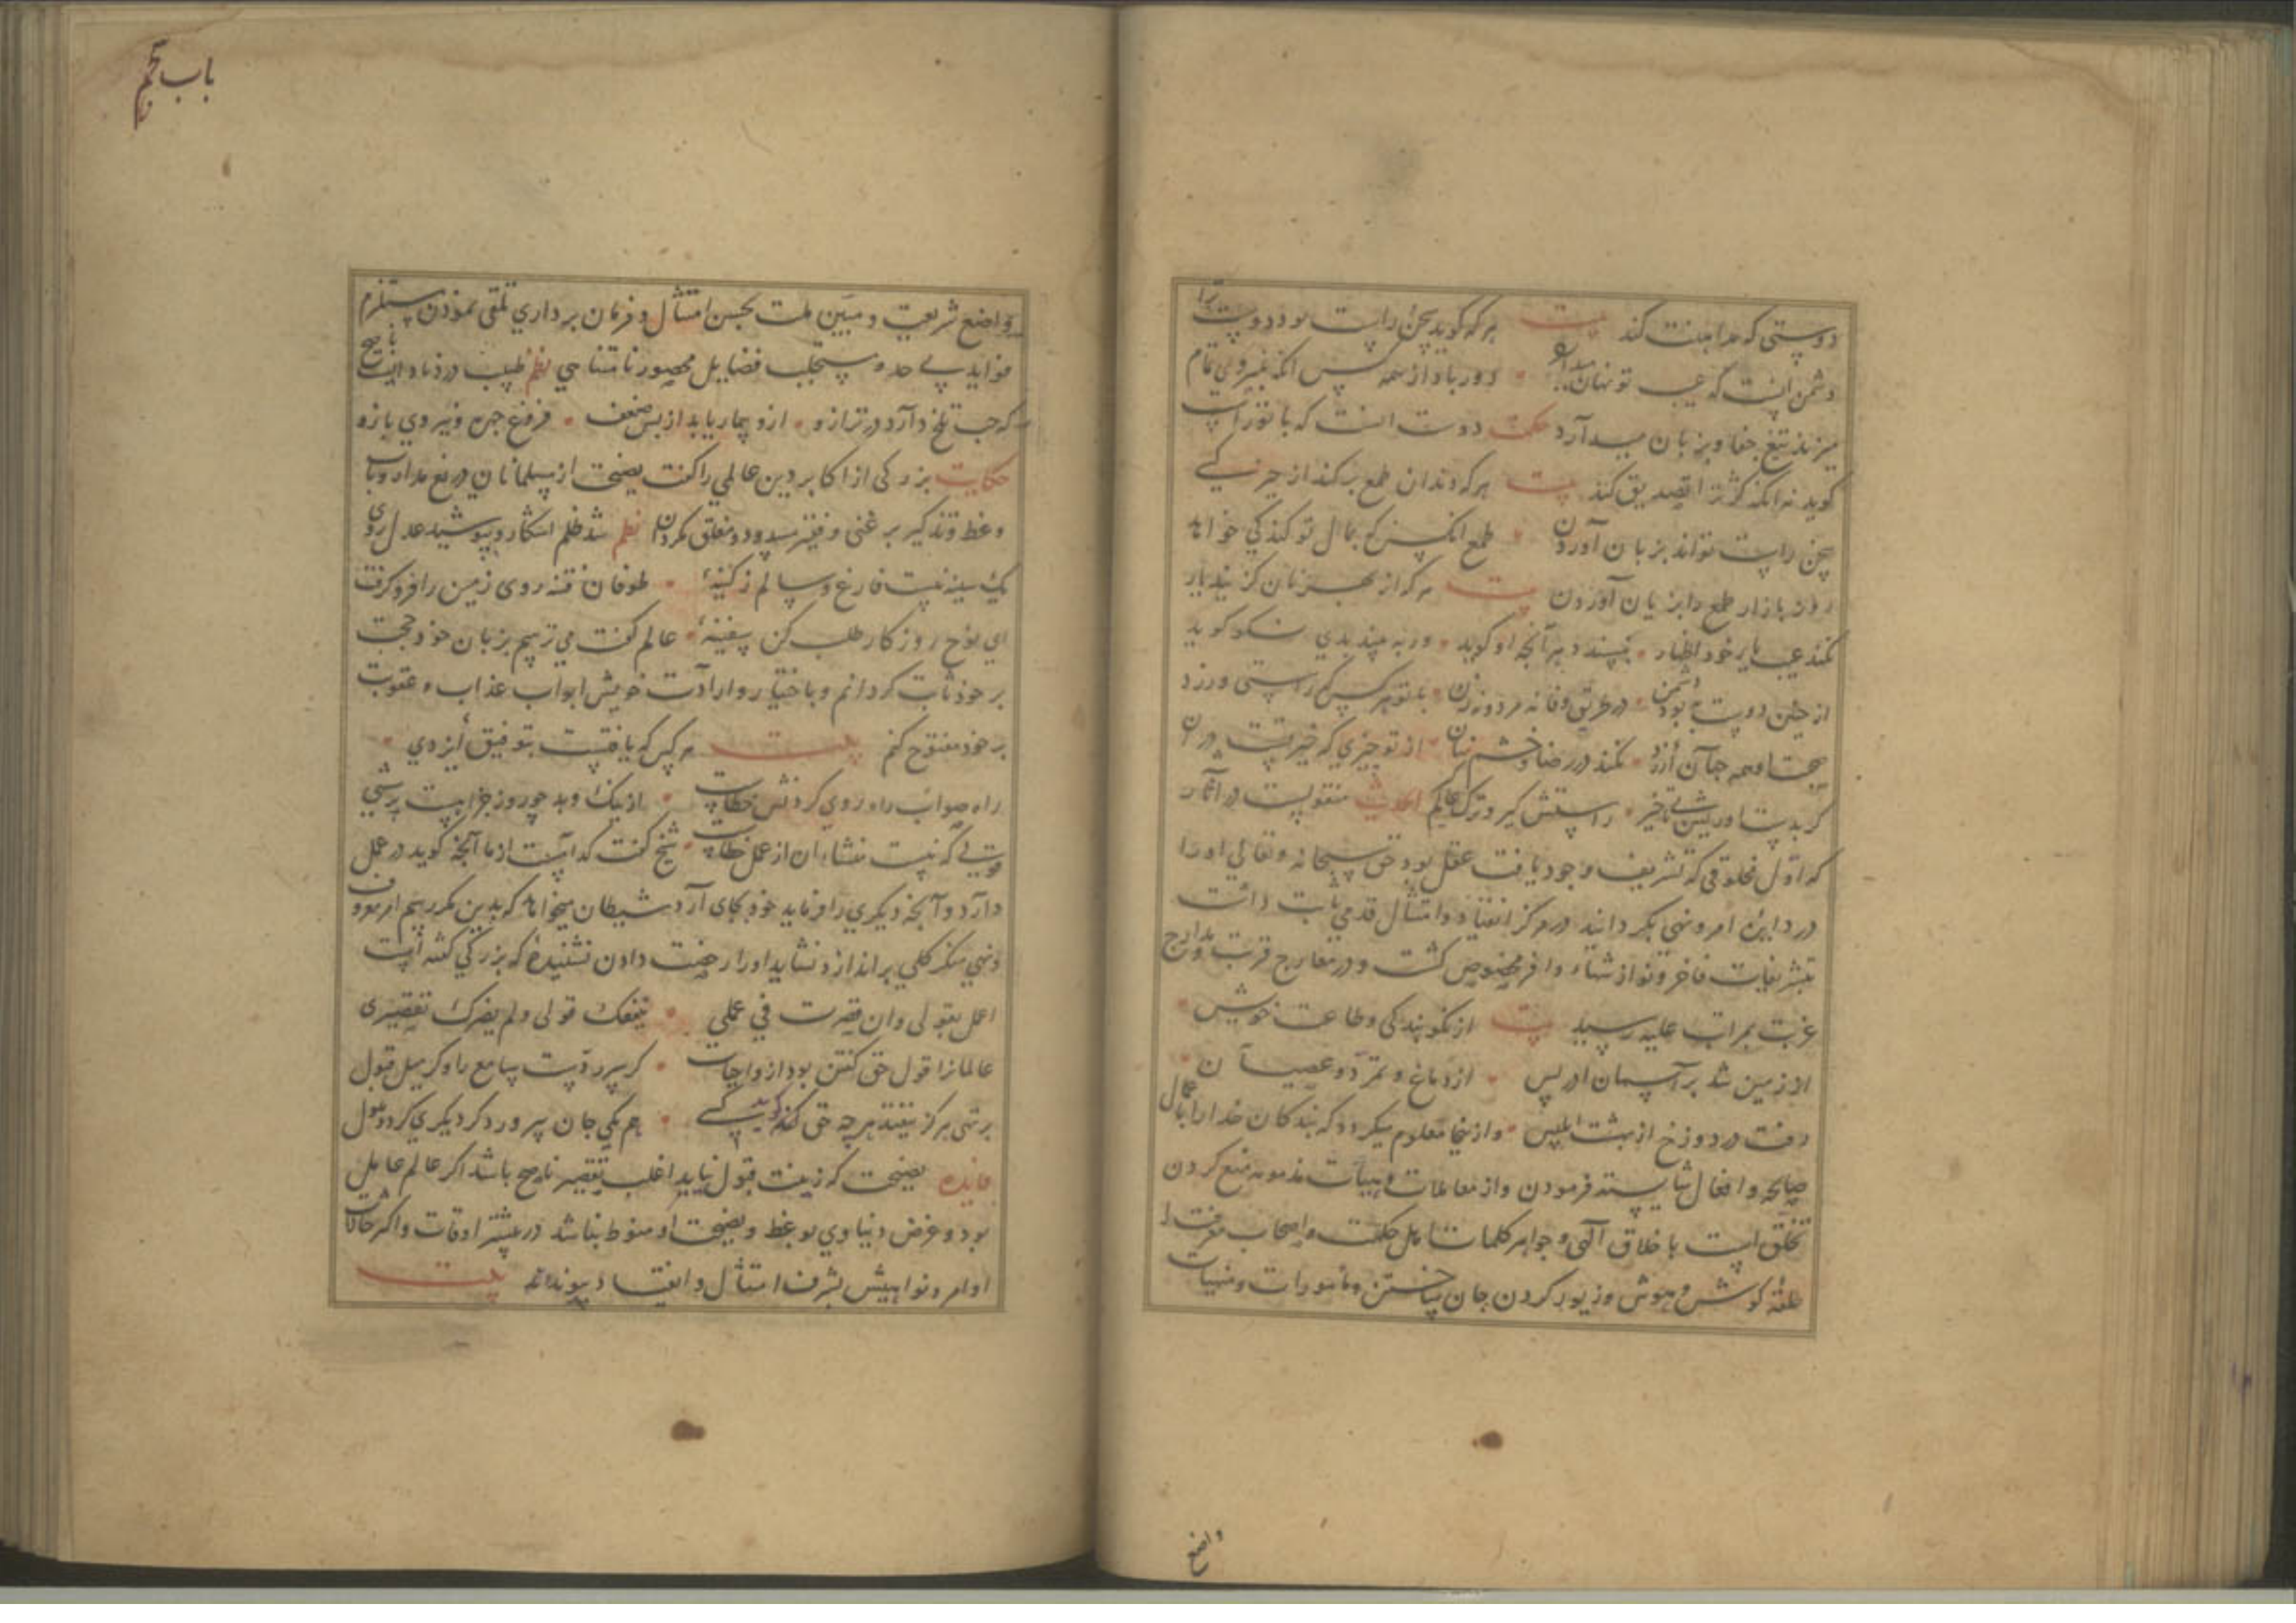 دوستی که مداهنت کند بیت هر که گوید سخن راست بود دوست ترا
دشمن آنست که عیب تو نهان میدارد دور باد از همه کس آنکه غیر وی تمام
میزند تیغ جفا و بزبان میدآرد حکمت دوست آنست که با تو راست
کوید نه آنکه کژ ترا تصدیق کند بیت هر که دندان طمع بر کند از چیز کسے
سخن راست تواند بزبان آوردن طمع آنکس که بمال تو کند کی خواهد
بازار طمع را بزیان آوردن بیت هر که از بهر نان کزیند یار
نکند عیب یار خود اظهار بپسندد هر آنچه او کوید ور به بیند بدی نکو کوید
از چنین دوست به بود دشمن در طریق وفا نه مرد و نه زن با تو هر کس که راستی ورزد
صحبتش همه جان ارزد نکند در رضا و خشم نهان از تو چیزی که خیر تست در آن
راستش گیر و ترک منقولست در آثار
که اول مخلوقی که تشریف وجود یافت عقل بود حق سبحانه و تعالی او را
در دایره امر و نهی بگردانید در مرکز انقیاد و امتثال قدمی ثابت داشت
بتشریفات فاخر و نوازشهاء وافر مخصوص کشت و در معارج قربت و مدارج
عزت بمراتب علیه رسید بیت از نکو بندگی و طاعت خویش
از زمین شد بر آسمان ادریس از دماغ و تمرد و عصیان
رفت در دوزخ از بهشت ابلیس و از ینجا معلوم میکردد که بندکان خدا را باعمال
صالحه و افعال شایسته فرمودن و از معاملات و هیات مذمومه منع کردن
تخلق است باخلاق آلهی و جواهر کلمات کامل حکمت و اصحاب معرفت را
حلقه کوش هوش و زیور کردن جان ساختن و مامورات و منهیات
واضع
باب پنجم
واضع شریعت و مبین ملت بحسن امتثال و فرمان برداری تلقی نموذن مستلزم
فواید بے حد و مستجلب فضایل محصور نامتناهی نظم طبیب ناصح
که حب تلخ دآرد در ترازو ازو بیمار یابد از پس ضعف فروغ چهره و نیروی بازو
حکایت بزرکی از اکابر دین عالمی را کفت نصیحت از مسلمانان دریغ مدار و باب
وعظ و تذکیر بر غنی و فقیر مسدود و مغلق مکردان نظم شد ظلم آشکار و بپوشید عدل روی
یک سینه نیست فارغ و سالم ز کینۀ طوفان فتنه روی زمین را فرو کرفت
ای نوح روزکار طلب کن سفینۀ عالم کفت می ترسم بزبان خود حجت
بر خوذ ثابت کردانم و باختیار و ارادت خویش ابواب عذاب و عقوبت
بر خود مفتوح کنم بیت هر کس که یافتست بتوفیق ایزدی
راه صواب راه روی کردنش خطاست از نیک و بد چو روز جزا هست پرسشی
قولے که نیست منشاء آن از عمل خطاست شیخ کفت کدامست از ما آنچه کوید در عمل
دارد و آنچه دیگری را فرماید خود بجای آرد شیطان میخواهد که بدین مکر رسم امر معروف
و نهی منکر کلی بر اندازد نشاید او را رخصت دادن نشنیدۀ که بزرکی کفته است
اعمل بقولی وان قصرت فی عملی ینفعک قولی ولم یضررک تقصیری
عالمانرا قول حق کفتن بود از واجبات کر بپرورست سامع را و کر میل قبول
بر تنی هر کز نیفتد هر چه حق کوید کسے هم یکی جان پرورد کر دیکری کردد ملول
فایده نصیحت که زینت قبول نیابد اغلب تقصیر ناصح باشد اکر عالم عامل
بود و غرض دنیاوی بوعظ و نصیحت او منوط نباشد در بیشتر اوقات و اکثر حالات
اوامر و نواهیش بشرف امتثال و انقیاد پیوندد بیت